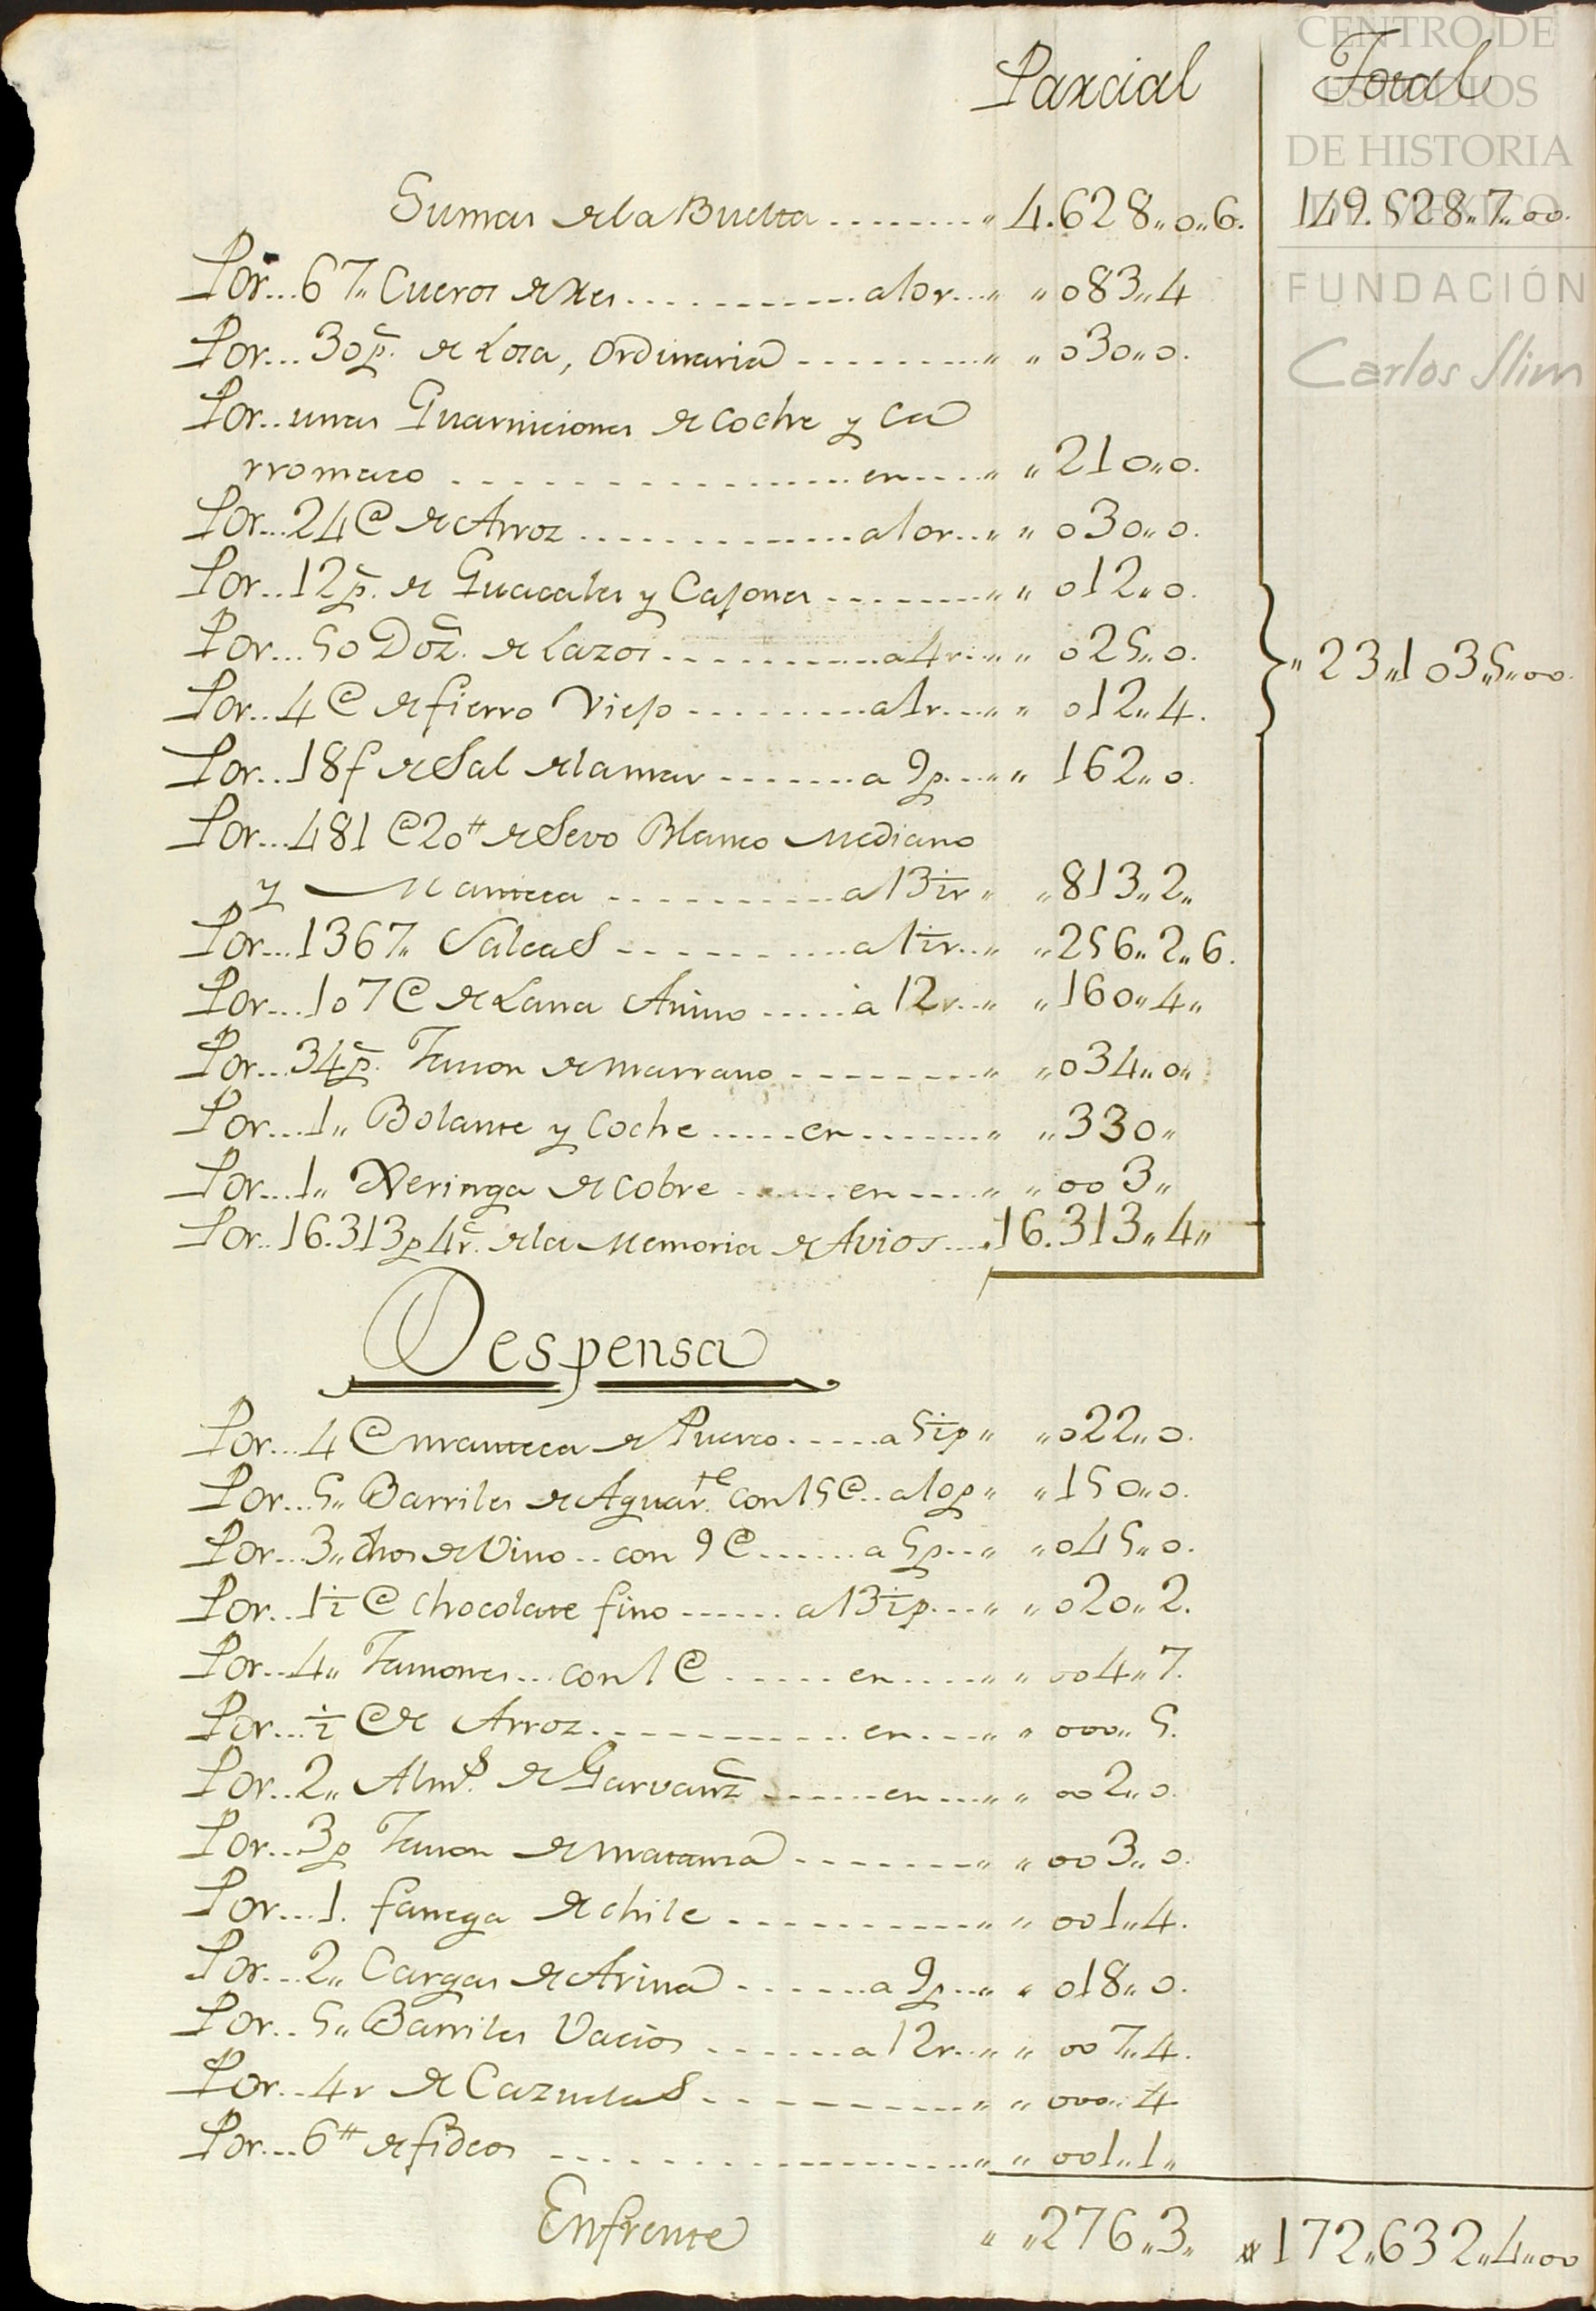 CENTRO DE
ESTUDIOS
DE HISTORIA
DE MÉXICO
FUNDACIÓN
Carlos Slim
Parcial Total
Sumas de la Buelta .......... 4.628,,0,,6. 149.528,,7,,00.
Por... 67,, Cueros de Res ............ a 10 r... ,, ,, 083,,4
Por... 30 p.s de Losa, Ordinaria .......... ,, ,, 030,,0.
Por.. unas Guarniciones de Coche y Ca
rromato .................. en.... ,, ,, 210,,0.
Por... 24 @ de Arroz .............. a 10 r.. ,, ,, 030,,0.
Por.. 12 p.s de Guacales y Cajones ........ ,, ,, 012,,0.
Por... 50 Doz.s de Lazos ........... a 4 r.. ,, ,, 025,,0.
,, 23,,103,,5,,00.
Por.. 4 @ de fierro Viejo .......... a 1 r... ,, ,, 012,,4.
Por.. 18 f de Sal de la mar ........ a 9 p... ,, ,, 162,,0.
Por... 481 @ 20 tt de Sevo Blanco Mediano
y Manteca ........... a 13 ½ r ,, ,, 813,,2,,
Por... 1367,, Saleas ........... a 1 ½ r.. ,, ,, 256,,2,,6.
Por... 107 @ de Lana Anino ..... a 12 r.. ,, ,, 160,,4,,
Por... 34 p.s Jamon de marrano ......... ,, ,, 034,,0,,
Por... 1,, Bolante y Coche ..... en ........ ,, ,, 330,,
Por... 1,, Xeringa de Cobre ...... en .... ,, ,, 003,,
Por.. 16.313 p 4 r.s de la Memoria de Avios .... 16.313,,4,,
Despensa
Por... 4 @ manteca de Puerco ..... a 5 ½ p ,, ,, 022,,0.
Por... 5,, Barriles de Aguar.te con 15 @.. a 10 p ,, ,, 150,,0.
Por... 3,, dhos de Vino.. con 9 @ ...... a 5 p.. ,, ,, 045,,0.
Por.. 1 ½ @ Chocolate fino ...... a 13 ½ p... ,, ,, 020,,2.
Por.. 4,, Jamones... con 1 @ ..... en .... ,, ,, 004,,7.
Por... ½ @ de Arroz .......... en .... ,, ,, 000,,5.
Por.. 2,, Alm.s de Garvanz ...... en ... ,, ,, 002,,0.
Por... 3 p Jamon de matanza ........ ,, ,, 003,,0.
Por... 1. fanega de chile ........... ,, ,, 001,,4.
Por... 2,, Cargas de Arina ...... a 9 p... ,, ,, 018,,0.
Por.. 5,, Barriles Vacios ...... a 12 r.. ,, ,, 007,,4.
Por.. 4 r de Cazuelas ........... ,, ,, 000,,4
Por... 6 tt de fideos .................. ,, ,, 001,,1,,
Enfrente ,, ,, 276,,3,, 172,,632,,4,,00